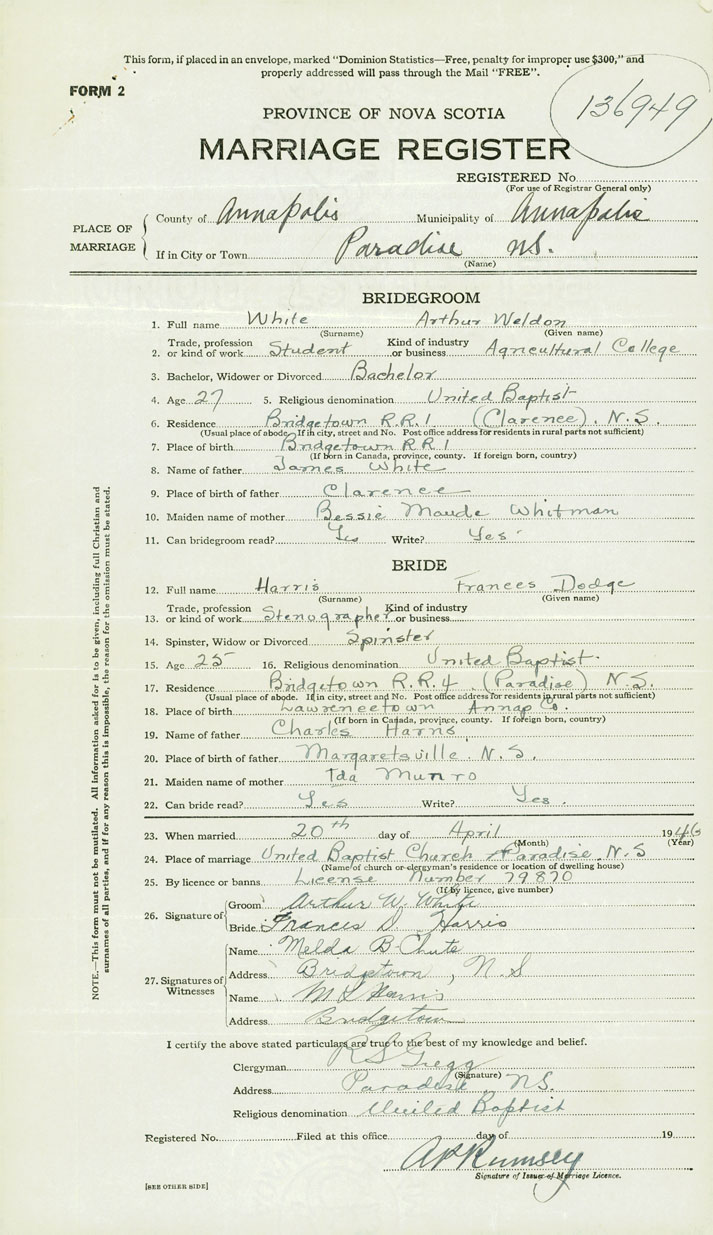 This form, if placed in an envelope, marked "Dominion Statistics—Free, penalty for improper use $300," and
properly addressed will pass through the Mail "FREE".
FORM 2
136949
PROVINCE OF NOVA SCOTIA
MARRIAGE REGISTER
REGISTERED No.
(For use of Registrar General only)
PLACE OF MARRIAGE
County of Annapolis Municipality of Annapolis
If in City or Town Paradise NS.
(Name)
BRIDEGROOM
1. Full name White Arthur Weldon
(Surname) (Given name)
2. Trade, profession or kind of work Student Kind of industry or business Agricultural College
3. Bachelor, Widower or Divorced Bachelor
4. Age 27 5. Religious denomination United Baptist
6. Residence Bridgetown R.R.1 (Clarence), N.S.
(Usual place of abode. If in city, street and No. Post office address for residents in rural parts not sufficient)
7. Place of birth Bridgetown RR1
(If born in Canada, province, county. If foreign born, country)
8. Name of father James White
9. Place of birth of father Clarence
10. Maiden name of mother Bessie Maude Whitman
11. Can bridegroom read? Yes Write? Yes
BRIDE
12. Full name Harris Frances Dodge
(Surname) (Given name)
13. Trade, profession or kind of work Stenographer Kind of industry or business
14. Spinster, Widow or Divorced Spinster
15. Age 25 16. Religious denomination United Baptist
17. Residence Bridgetown R.R.4 (Paradise) N.S.
(Usual place of abode. If in city, street and No. Post office address for residents in rural parts not sufficient)
18. Place of birth Lawrencetown Annap Co.
(If born in Canada, province, county. If foreign born, country)
19. Name of father Charles Harris
20. Place of birth of father Margaretsville N.S.
21. Maiden name of mother Ida Munro
22. Can bride read? Yes Write? Yes.
23. When married 20th day of April 1946
(Month) (Year)
24. Place of marriage United Baptist Church Paradise N.S
(Name of church or clergyman's residence or location of dwelling house)
25. By licence or banns License Number 79870
(If by licence, give number)
26. Signature of
Groom Arthur W. White
Bride Frances D. Harris
27. Signatures of Witnesses
Name Melda B Chute
Address Bridgetown, N.S
Name M L Harris
Address Bridgetown
I certify the above stated particulars are true to the best of my knowledge and belief.
Clergyman R S Gregg
(Signature)
Address Paradise NS.
Religious denomination United Baptist
Registered No. Filed at this office day of 19
Rumsey
Signature of Issuer of Marriage Licence.
[SEE OTHER SIDE]
NOTE.—This form must not be mutilated. All information asked for is to be given, including full Christian and
surnames of all parties, and if for any reason this is impossible, the reason for the omission must be stated.